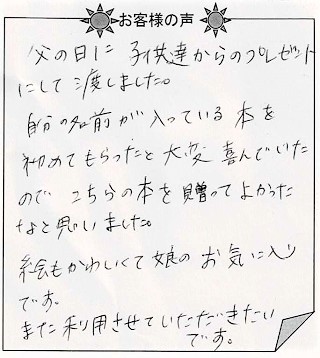 お客様の声
父の日に 子供達からのプレゼント
にして渡しました。
自分の名前が入っている本を
初めてもらったと大変喜んでいた
ので こちらの本を贈ってよかった
なと思いました。
絵もかわいくて娘のお気に入り
です。
また利用させていただきたい
です。